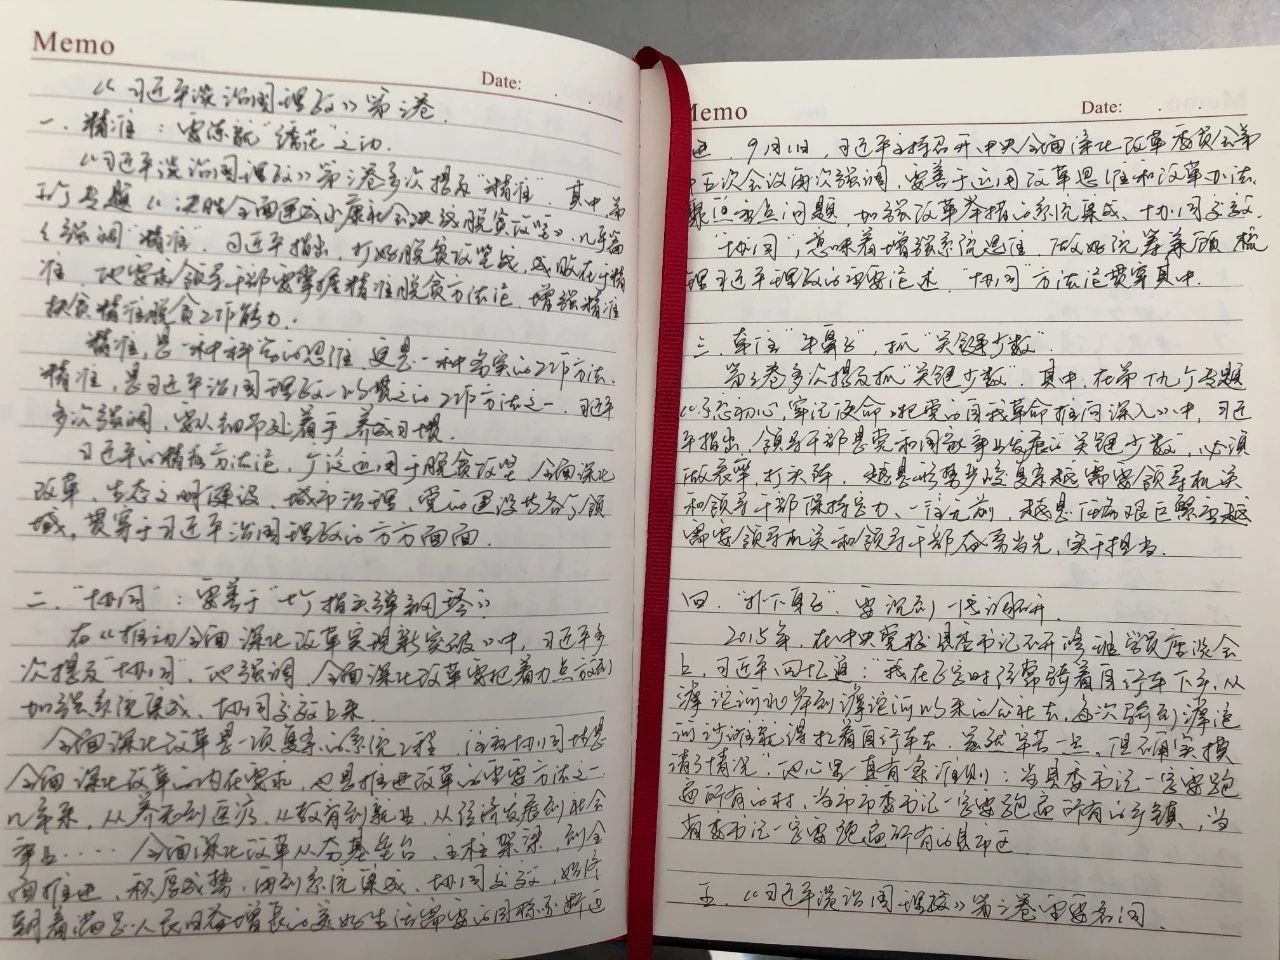 Memo
Date:
《习近平谈治国理政》第三卷.
一. 精准：要练就"绣花"之功.
《习近平谈治国理政》第三卷多次提及"精准". 其中第
专题《决胜全面建成小康社会决战脱贫攻坚》. 几乎篇
强调"精准". 习近平指出, 打好脱贫攻坚战, 成败在于精
准. 他要求领导干部要掌握精准脱贫方法论, 增强精准
扶贫精准脱贫工作能力.
精准, 是一种科学的思维, 更是一种务实的工作方法.
精准, 是习近平治国理政一以贯之的工作方法之一. 习近平
多次强调, 要从细节处着手, 养成习惯.
习近平的精准方法论, 广泛运用于脱贫攻坚, 全面深化
改革、生态文明建设、城市治理、党的建设等各个领
域, 贯穿于习近平治国理政的方方面面.
二. "协同"：要善于"十个指头弹钢琴"
在《推动全面深化改革实现新突破》中, 习近平多
次提及"协同". 他强调, 全面深化改革要把着力点放到
加强系统集成、协同高效上来.
全面深化改革是一项复杂的系统工程, 注重协同性是
全面深化改革的内在要求, 也是推进改革的重要方法之一
几年来, 从养老到医疗, 从教育到就业, 从经济发展到社会
事业…… 全面深化改革从夯基垒台、立柱架梁, 到全
面推进、积厚成势, 再到系统集成、协同高效, 始终
朝着满足人民日益增长的美好生活需要的目标不断迈
Memo
Date:
进. 9月1日, 习近平主持召开中央全面深化改革委员会第
十五次会议再次强调, 要善于运用改革思维和改革办法,
紧盯重点问题, 加强改革举措的系统集成、协同高效.
"协同", 意味着增强系统思维, 做好统筹兼顾. 梳
理习近平理政的重要论述, "协同"方法论贯穿其中.
三. 牵住"牛鼻子", 抓"关键少数"
第三卷多次提及抓"关键少数". 其中, 在第十九个专题
《不忘初心, 牢记使命, 把党的自我革命推向深入》中, 习近
平指出, 领导干部是党和国家事业发展的"关键少数", 必须
做表率, 打头阵. 越是形势步骤复杂越需要领导机关
和领导干部保持定力、一往无前, 越是任务艰巨繁重越
需要领导机关和领导干部奋勇当先, 实干担当.
四. "扑下身子", 要沉到一线调研.
2015年, 在中央党校县委书记研修班学员座谈会
上, 习近平回忆道："我在正定时经常骑着自行车下乡, 从
滹沱河北岸到滹沱河以南的公社去, 每次骑到滹沱
河沙滩就得扛着自行车走. 虽然辛苦一点, 但确实摸
清了情况". 他心里真有条准则：当县委书记一定要跑
遍所有的村, 当市委书记一定要跑遍所有的乡镇, 当
省委书记一定要跑遍所有的县市区.
五. 《习近平谈治国理政》第三卷重要名词.